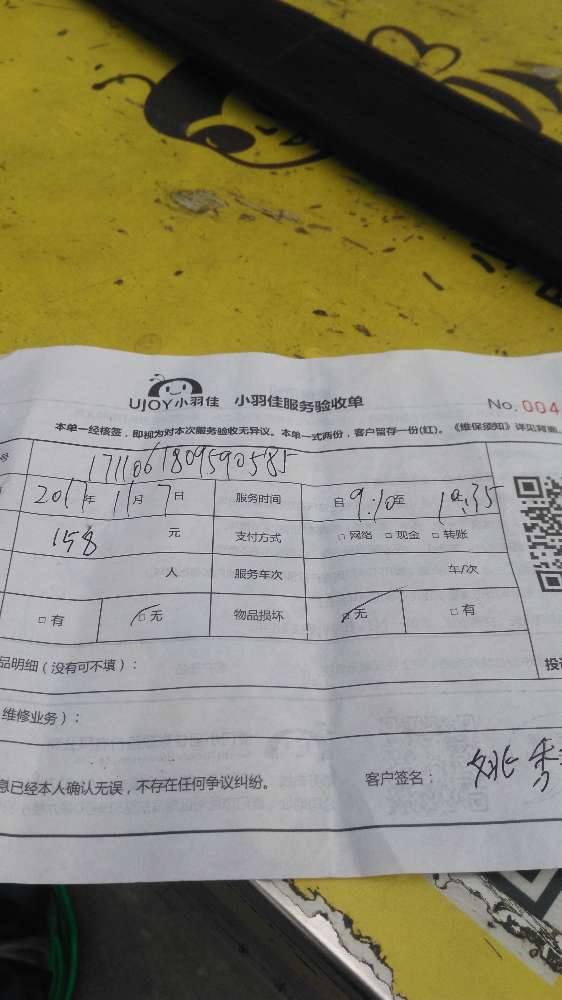 UJOY小羽佳 小羽佳服务验收单 No.004
本单一经核签，即视为对本次服务验收无异议。本单一式两份，客户留存一份(红)。《维保须知》详见背面。
号 1711061809590585
2017年11月7日 服务时间 自9:10至10:35
158元 支付方式 □网络 □现金 □转账
人 服务车次 车/次
□有 □无 物品损坏 □无 □有
品明细（没有可不填）：
投
维修业务）：
息已经本人确认无误，不存在任何争议纠纷。 客户签名： 姚秀